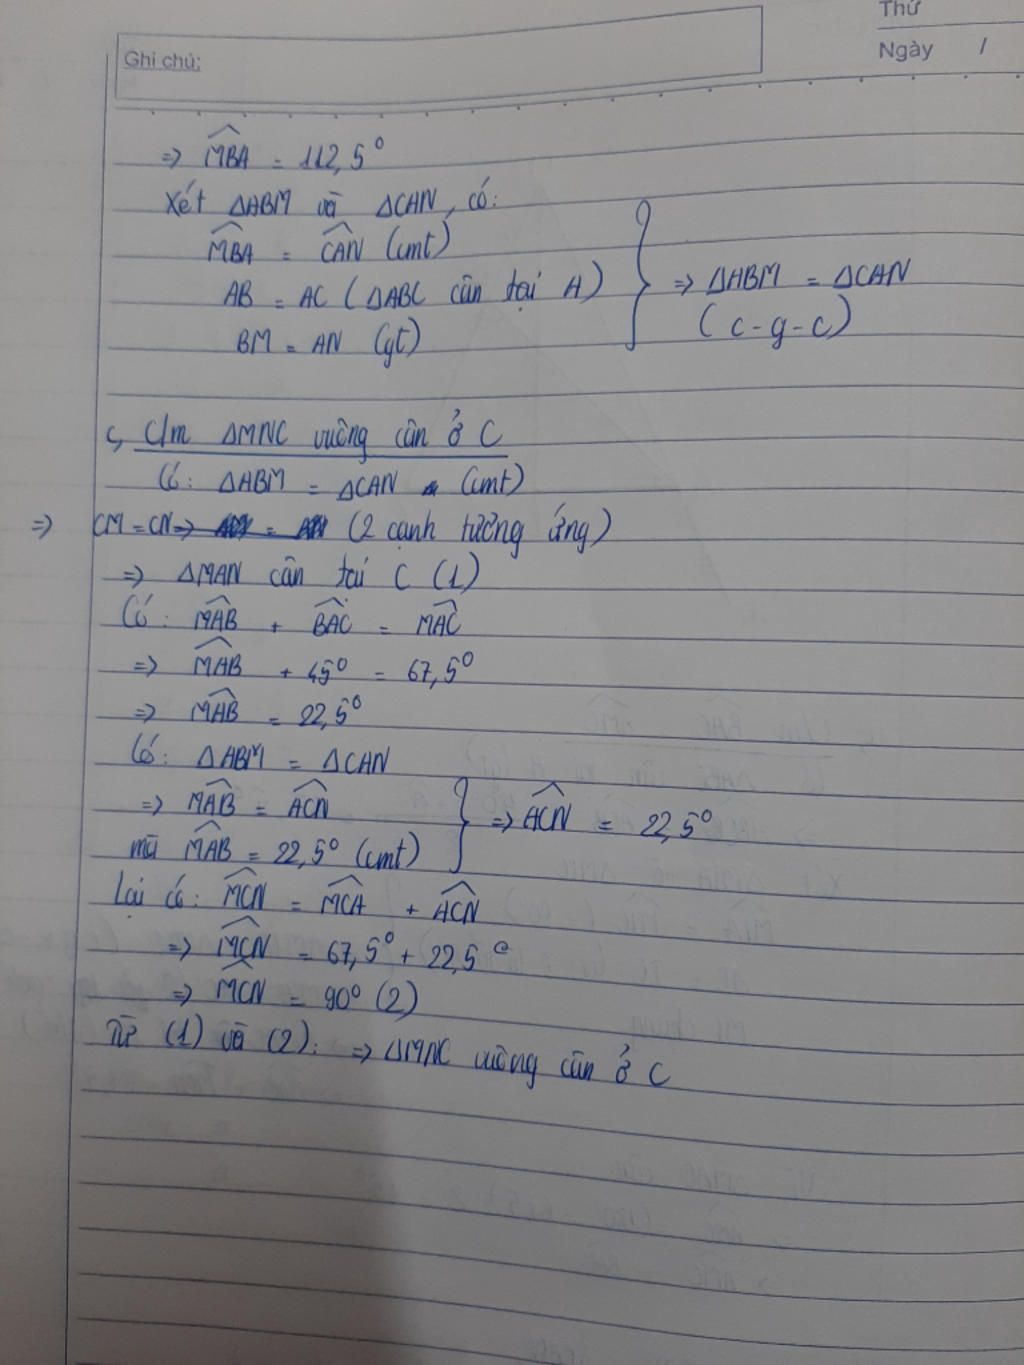 Thứ
Ghi chú:
Ngày /
=> MBA = 112,5°
Xét ΔABM và ΔCAN, có:
MBA = CAN (cmt)
AB = AC (ΔABC cân tại A)
BM = AN (gt)
=> ΔABM = ΔCAN
(c-g-c)
c, C/m ΔMNC vuông cân ở C
Có: ΔABM = ΔCAN (cmt)
=> CM = CN => = (2 cạnh tương ứng)
=> ΔMAN cân tại C (1)
Có: MAB + BAC = MAC
=> MAB + 45° = 67,5°
=> MAB = 22,5°
Có: ΔABM = ΔCAN
=> MAB = ACN
mà MAB = 22,5° (cmt)
=> ACN = 22,5°
Lại có: MCN = MCA + ACN
=> MCN = 67,5° + 22,5°
=> MCN = 90° (2)
Từ (1) và (2): => ΔMNC vuông cân ở C